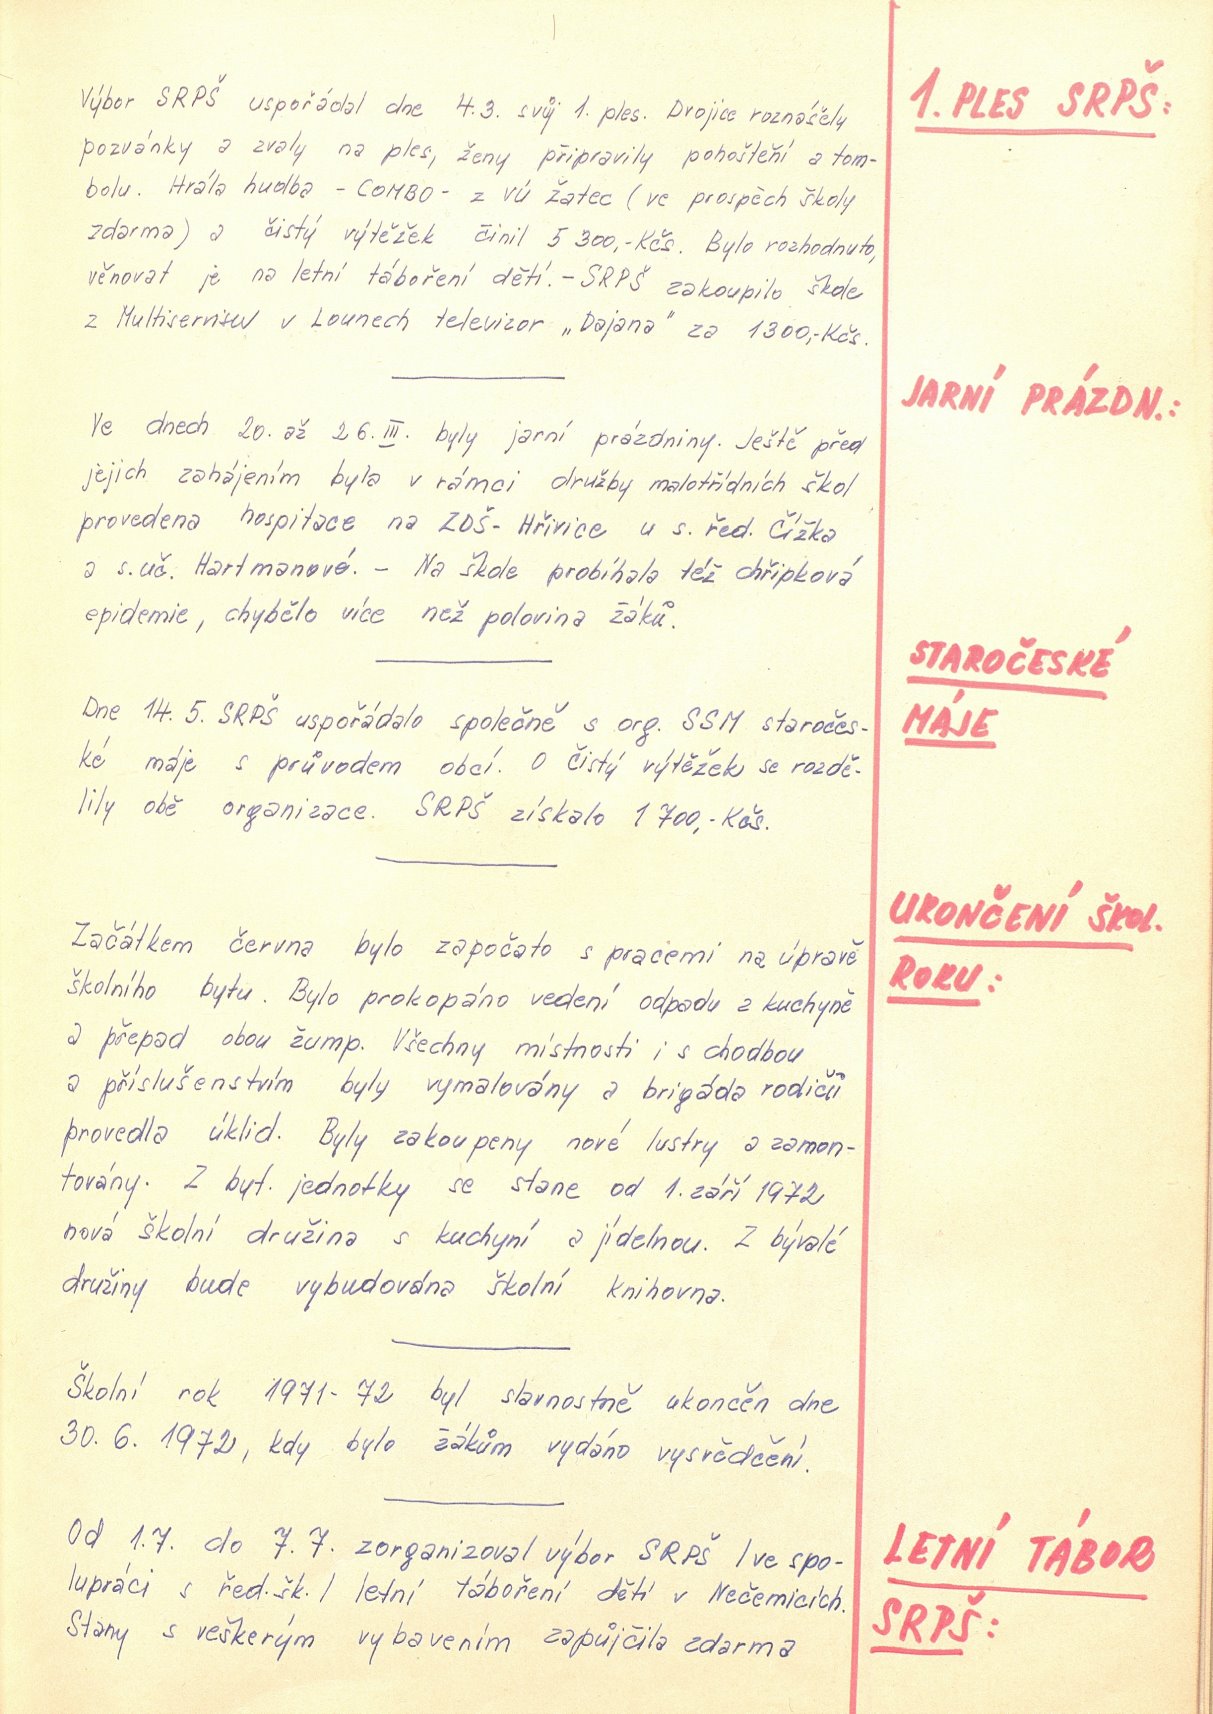 1. PLES SRPŠ:
Výbor SRPŠ uspořádal dne 4.3. svůj 1. ples. Dvojice roznášely
pozvánky a zvaly na ples, ženy připravily pohoštění a tom-
bolu. Hrála hudba - COMBO - z VÚ Žatec (ve prospěch školy
zdarma) a čistý výtěžek činil 5 300,-Kčs. Bylo rozhodnuto,
věnovat je na letní táboření dětí. - SRPŠ zakoupilo škole
z Multiservisu v Lounech televizor „Dajana" za 1300,-Kčs.
JARNÍ PRÁZDN.:
Ve dnech 20. až 26. III. byly jarní prázdniny. Ještě před
jejich zahájením byla v rámci družby malotřídních škol
provedena hospitace na ZDŠ - Hřivice u s. řed. Čížka
a s. uč. Hartmanové. - Na škole probíhala též chřipková
epidemie, chybělo více než polovina žáků.
STAROČESKÉ
MÁJE
Dne 14. 5. SRPŠ uspořádalo společně s org. SSM staročes-
ké máje s průvodem obcí. O čistý výtěžek se rozdě-
lily obě organizace. SRPŠ získalo 1 700,-Kčs.
UKONČENÍ ŠKOL.
ROKU:
Začátkem června bylo započato s pracemi na úpravě
školního bytu. Bylo prokopáno vedení odpadu z kuchyně
a přepad obou žump. Všechny místnosti i s chodbou
a příslušenstvím byly vymalovány a brigáda rodičů
provedla úklid. Byly zakoupeny nové lustry a zamon-
továny. Z byt. jednotky se stane od 1. září 1972
nová školní družina s kuchyní a jídelnou. Z bývalé
družiny bude vybudována školní knihovna.
Školní rok 1971-72 byl slavnostně ukončěn dne
30. 6. 1972, kdy bylo žákům vydáno vysvědčení.
LETNÍ TÁBOR
SRPŠ:
Od 1.7. do 7.7. zorganizoval výbor SRPŠ /ve spo-
lupráci s řed. šk./ letní táboření dětí v Nečemicích.
Stany s veškerým vybavením zapůjčila zdarma